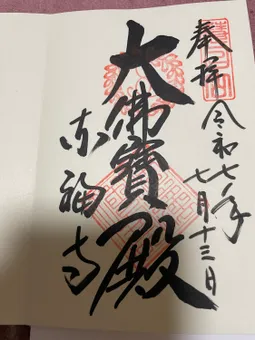 奉拝 令和七年七月十三日
大佛寶殿
東福寺